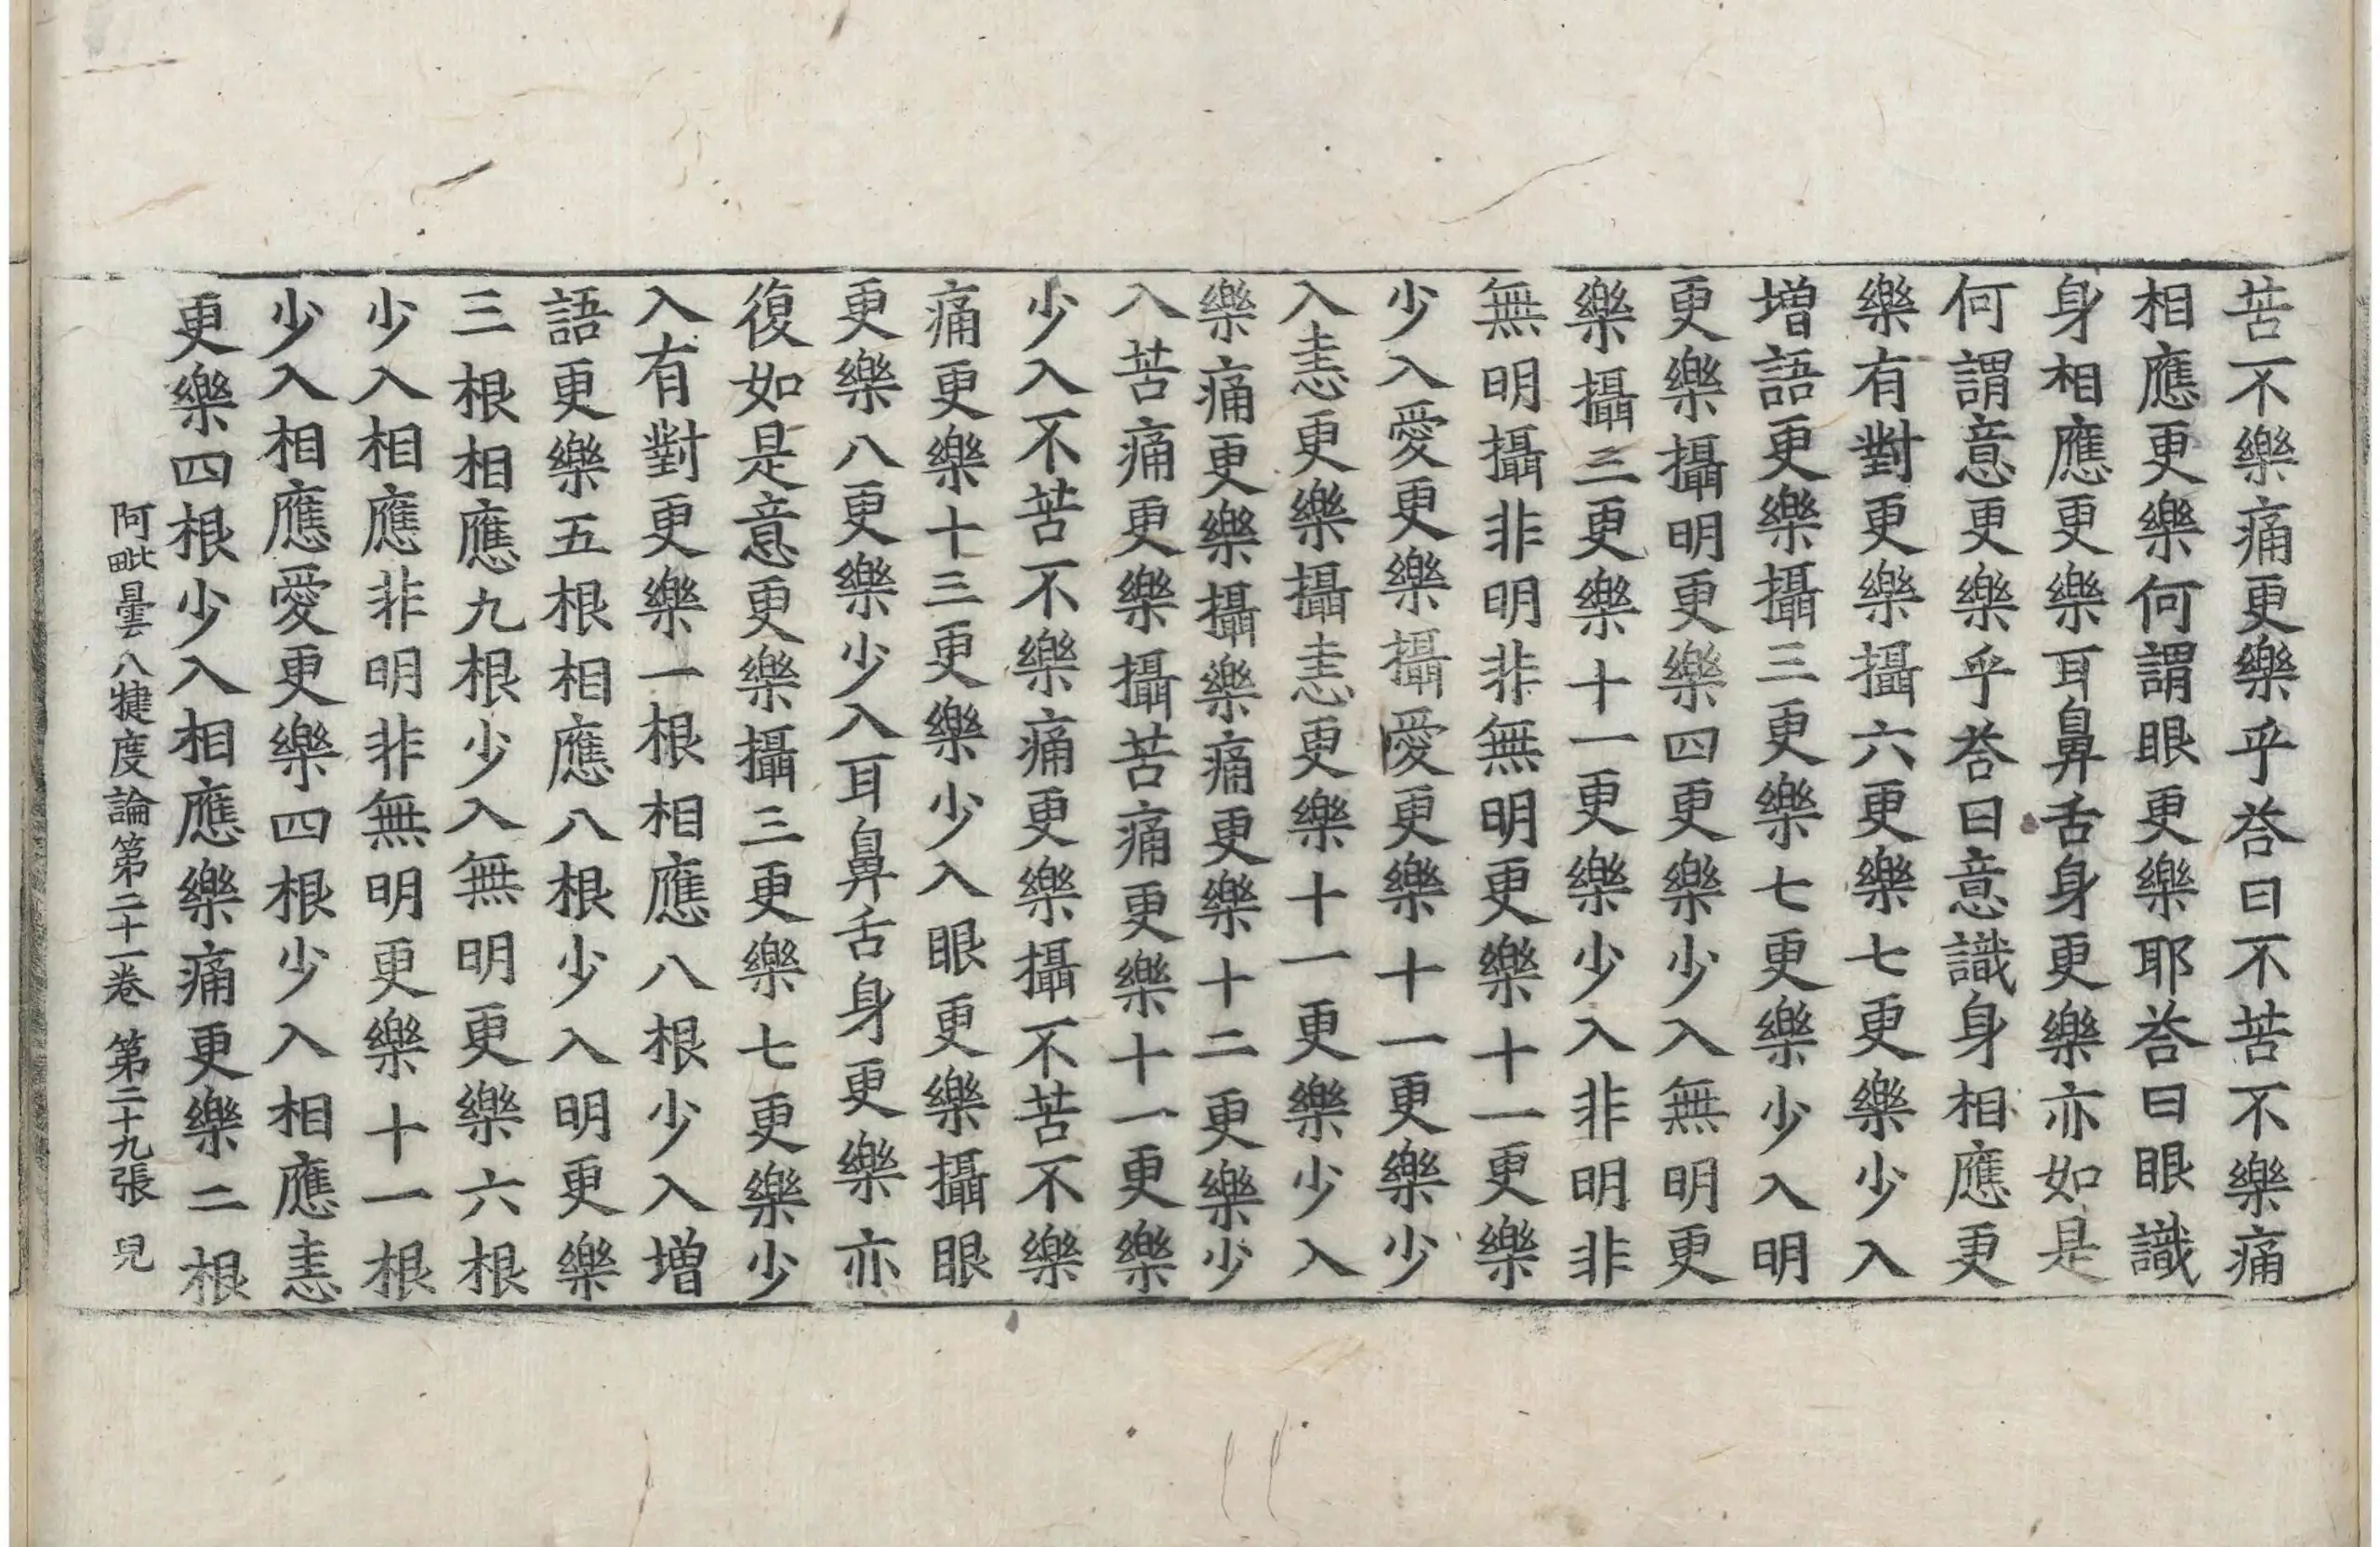 苦不樂痛更樂乎荅曰不苦不樂痛
相應更樂何謂眼更樂耶荅曰眼識
身相應更樂耳鼻舌身更樂亦如是
何謂意更樂乎荅曰意識身相應更
樂有對更樂攝六更樂七更樂少入
增語更樂攝三更樂七更樂少入明
更樂攝明更樂四更樂少入無明更
樂攝三更樂十一更樂少入非明非
無明攝非明非無明更樂十一更樂
少入愛更樂攝愛更樂十一更樂少
入恚更樂攝恚更樂十一更樂少入
樂痛更樂攝樂痛更樂十二更樂少
入苦痛更樂攝苦痛更樂十一更樂
少入不苦不樂痛更樂攝不苦不樂
痛更樂十三更樂少入眼更樂攝眼
更樂八更樂少入耳鼻舌身更樂亦
復如是意更樂攝三更樂七更樂少
入有對更樂一根相應八根少入增
語更樂五根相應八根少入明更樂
三根相應九根少入無明更樂六根
少入相應非明非無明更樂十一根
少入相應愛更樂四根少入相應恚
更樂四根少入相應樂痛更樂二根
阿毗曇八犍度論第二十一卷 第二十九張 皃